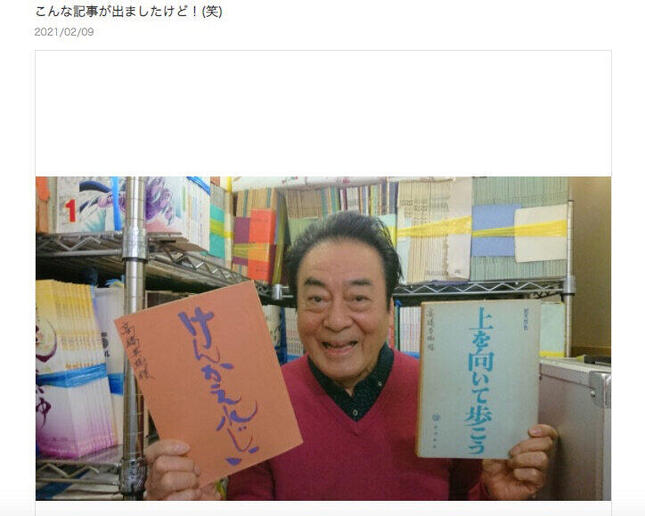 こんな記事が出ましたけど！(笑)
2021/02/09
1
髙橋英樹様
けんかえれじい
髙橋英樹様
上を向いて歩こう